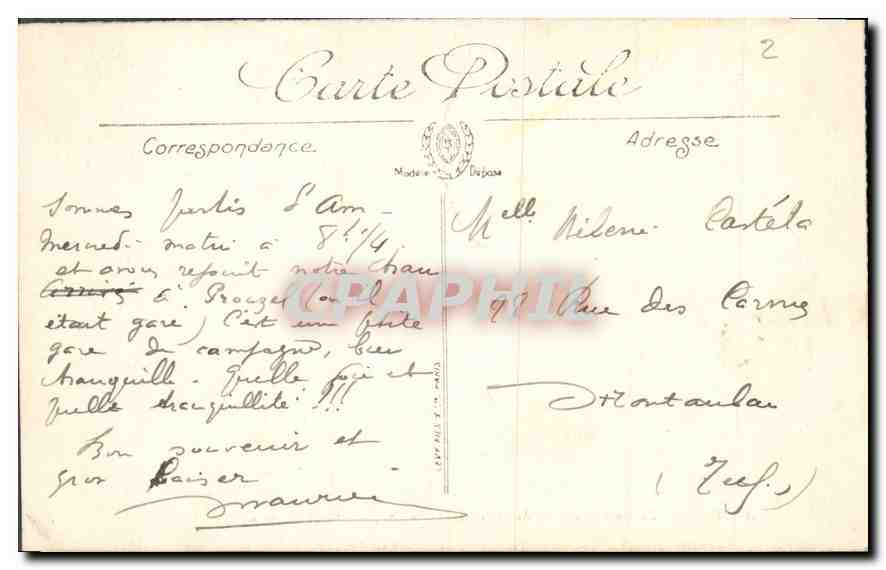 2
Carte Postale
Correspondance
Adresse
Modèle Déposé
Sommes partis d'Am
Mercredi matin à 8h 1/4
et avons rejoint notre
Arrivé à Prouzel (où il
était garé) C'est une petite
gare de campagne, bien
tranquille. Quelle joie et
quelle tranquillité !!!
Bon souvenir et
gros baiser
Maurice
LEVY FILS & Cie PARIS
Melle Castéla
Rue des Carmes
Montauban
(T et G.)
CPAPHIL